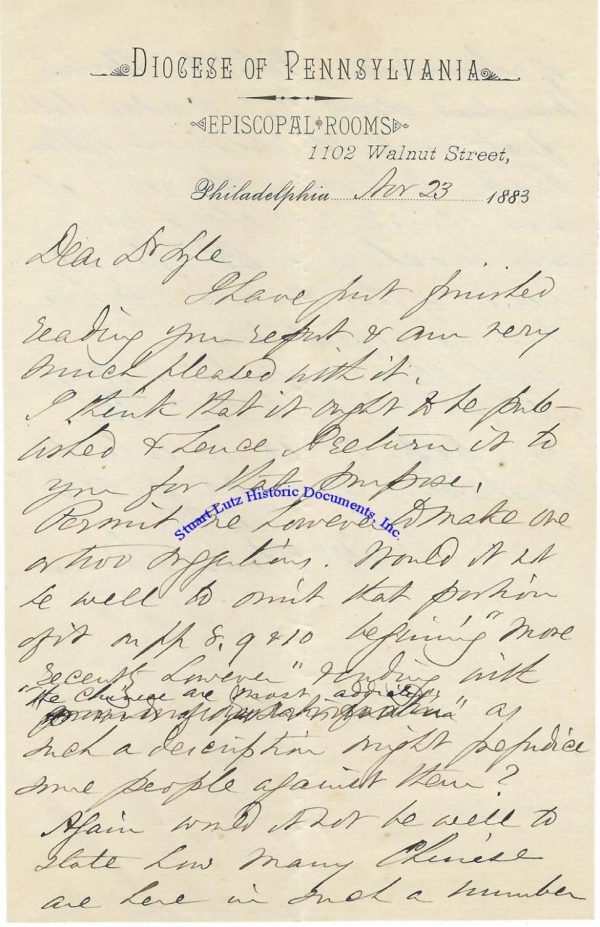 DIOCESE OF PENNSYLVANIA
EPISCOPAL ROOMS
1102 Walnut Street,
Philadelphia Nov 23 1883
Dear Dr Lyle
I have just finished
reading your report & am very
much pleased with it.
I think that it ought to be pub-
lished & hence I return it to
you for that purpose.
Stuart Lutz Historic Documents, Inc.
Permit me however to make one
or two suggestions. Would it not
be well to omit that portion
of it on pp 8, 9 & 10 begining "More
recently however" & ending with
"the Chinese are most addicted" as
such a description might prejudice
some people against them?
Again would it not be well to
state how many Chinese
are here in such a number